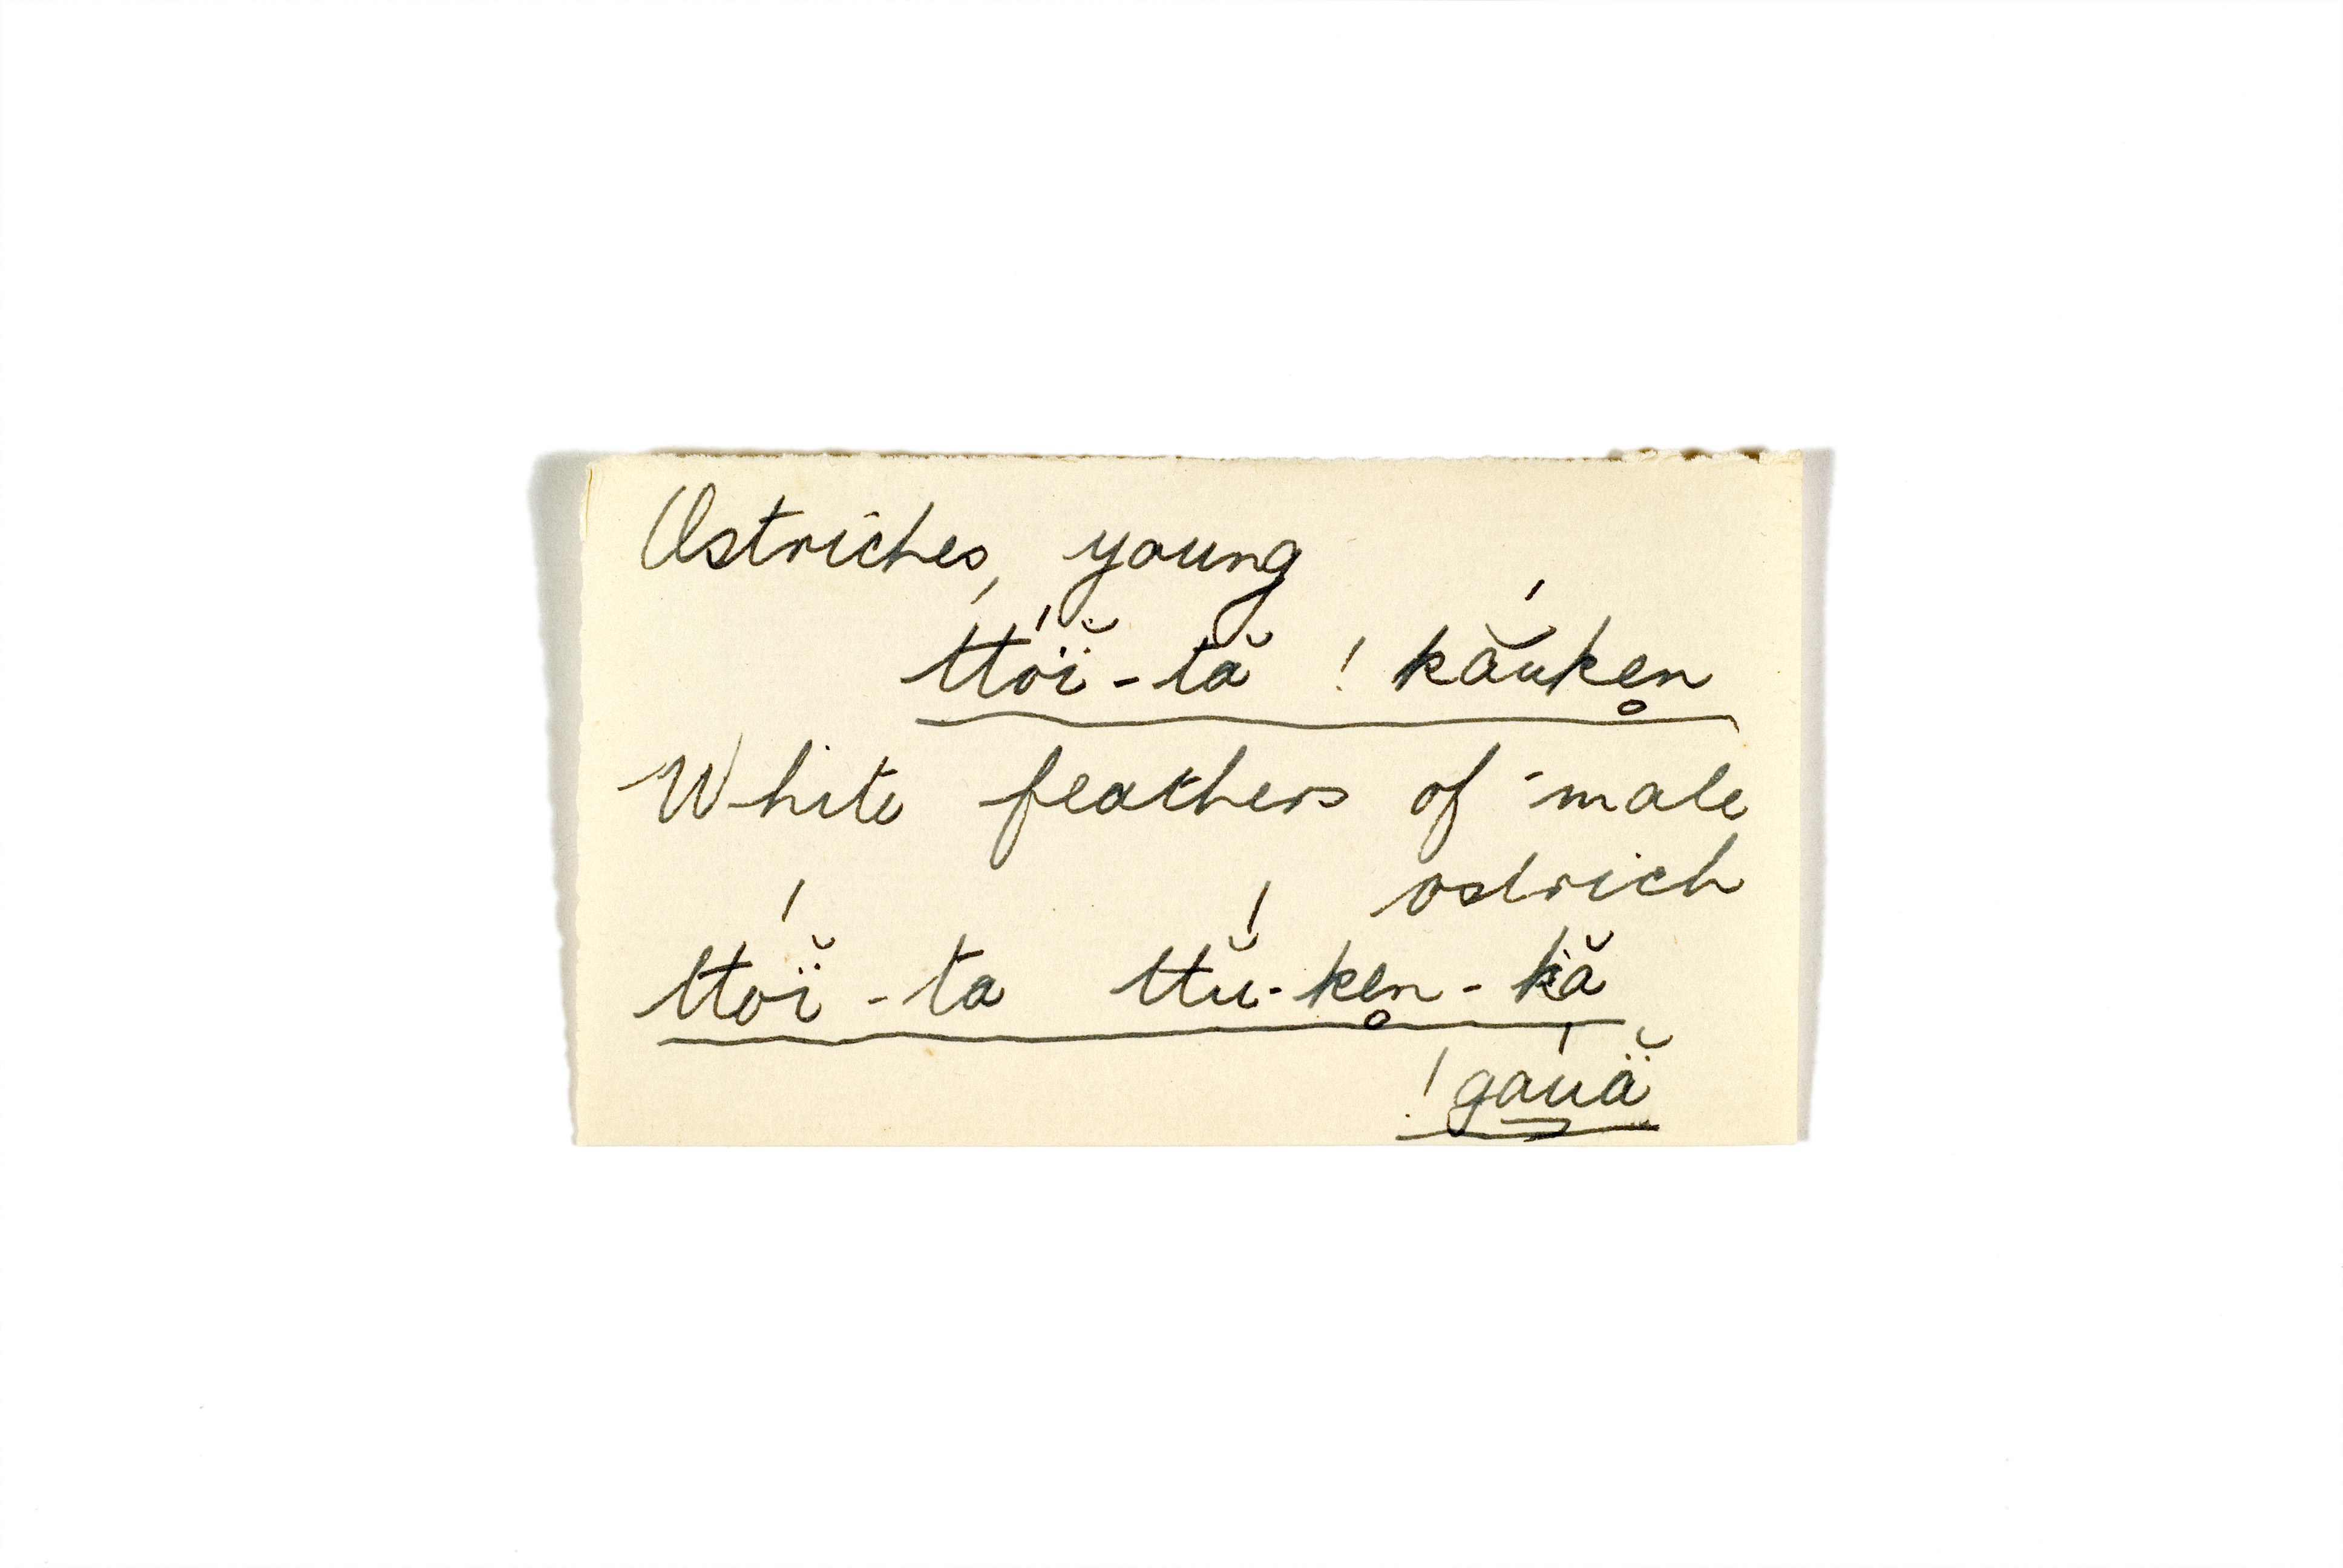 Ostriches, young
ttó̈ĭ-tă !kắukẹn
White feathers of male
ostrich
ttóĭ̈-ta ttŭ́-kẹn-kă
!gáuä̆